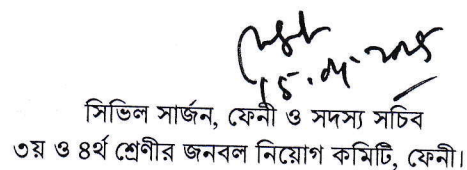 সিভিল সার্জন, ফেনী ও সদস্য সচিব
৩য় ও ৪র্থ শ্রেণীর জনবল নিয়োগ কমিটি, ফেনী।